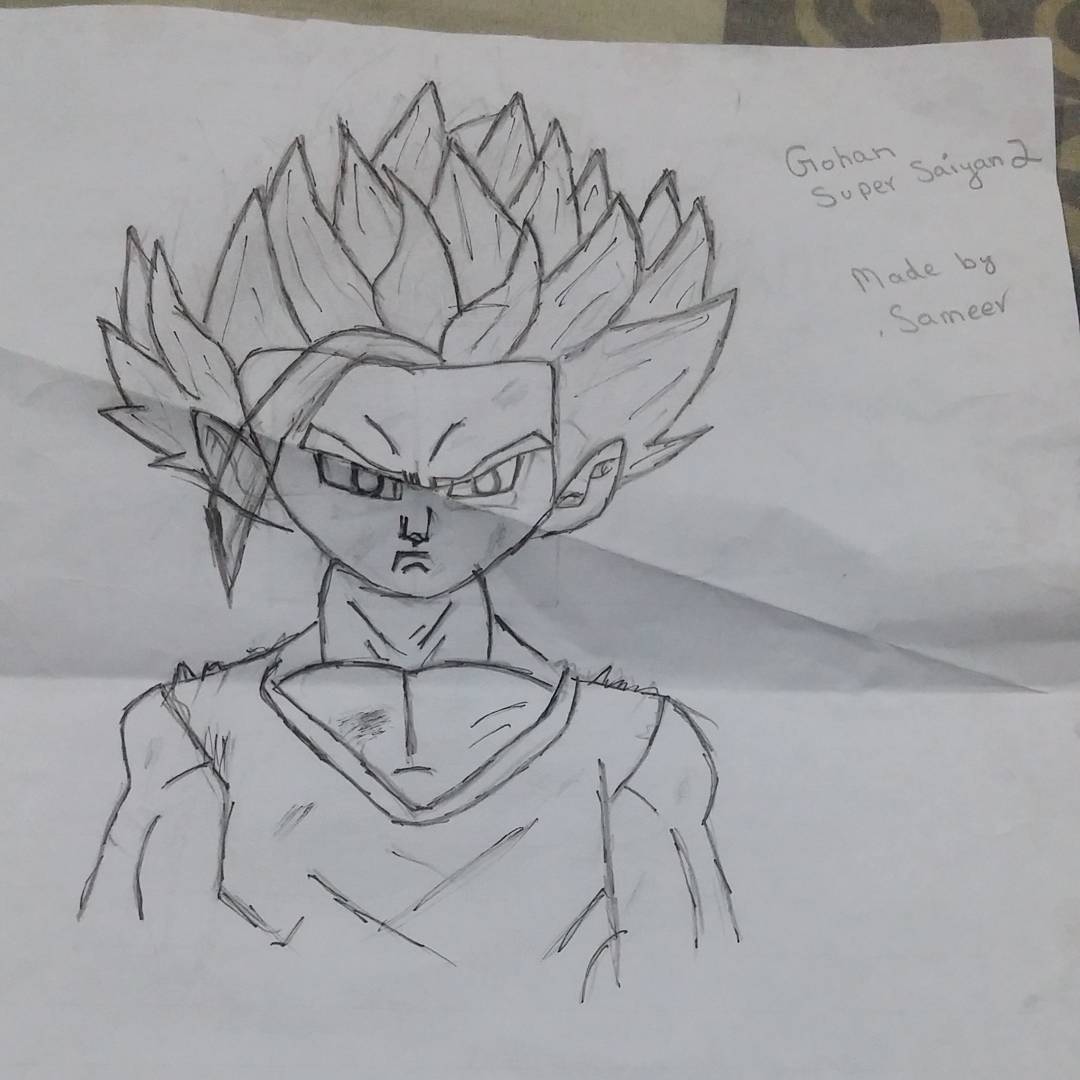 Gohan
Super Saiyan 2
Made by
Sameer